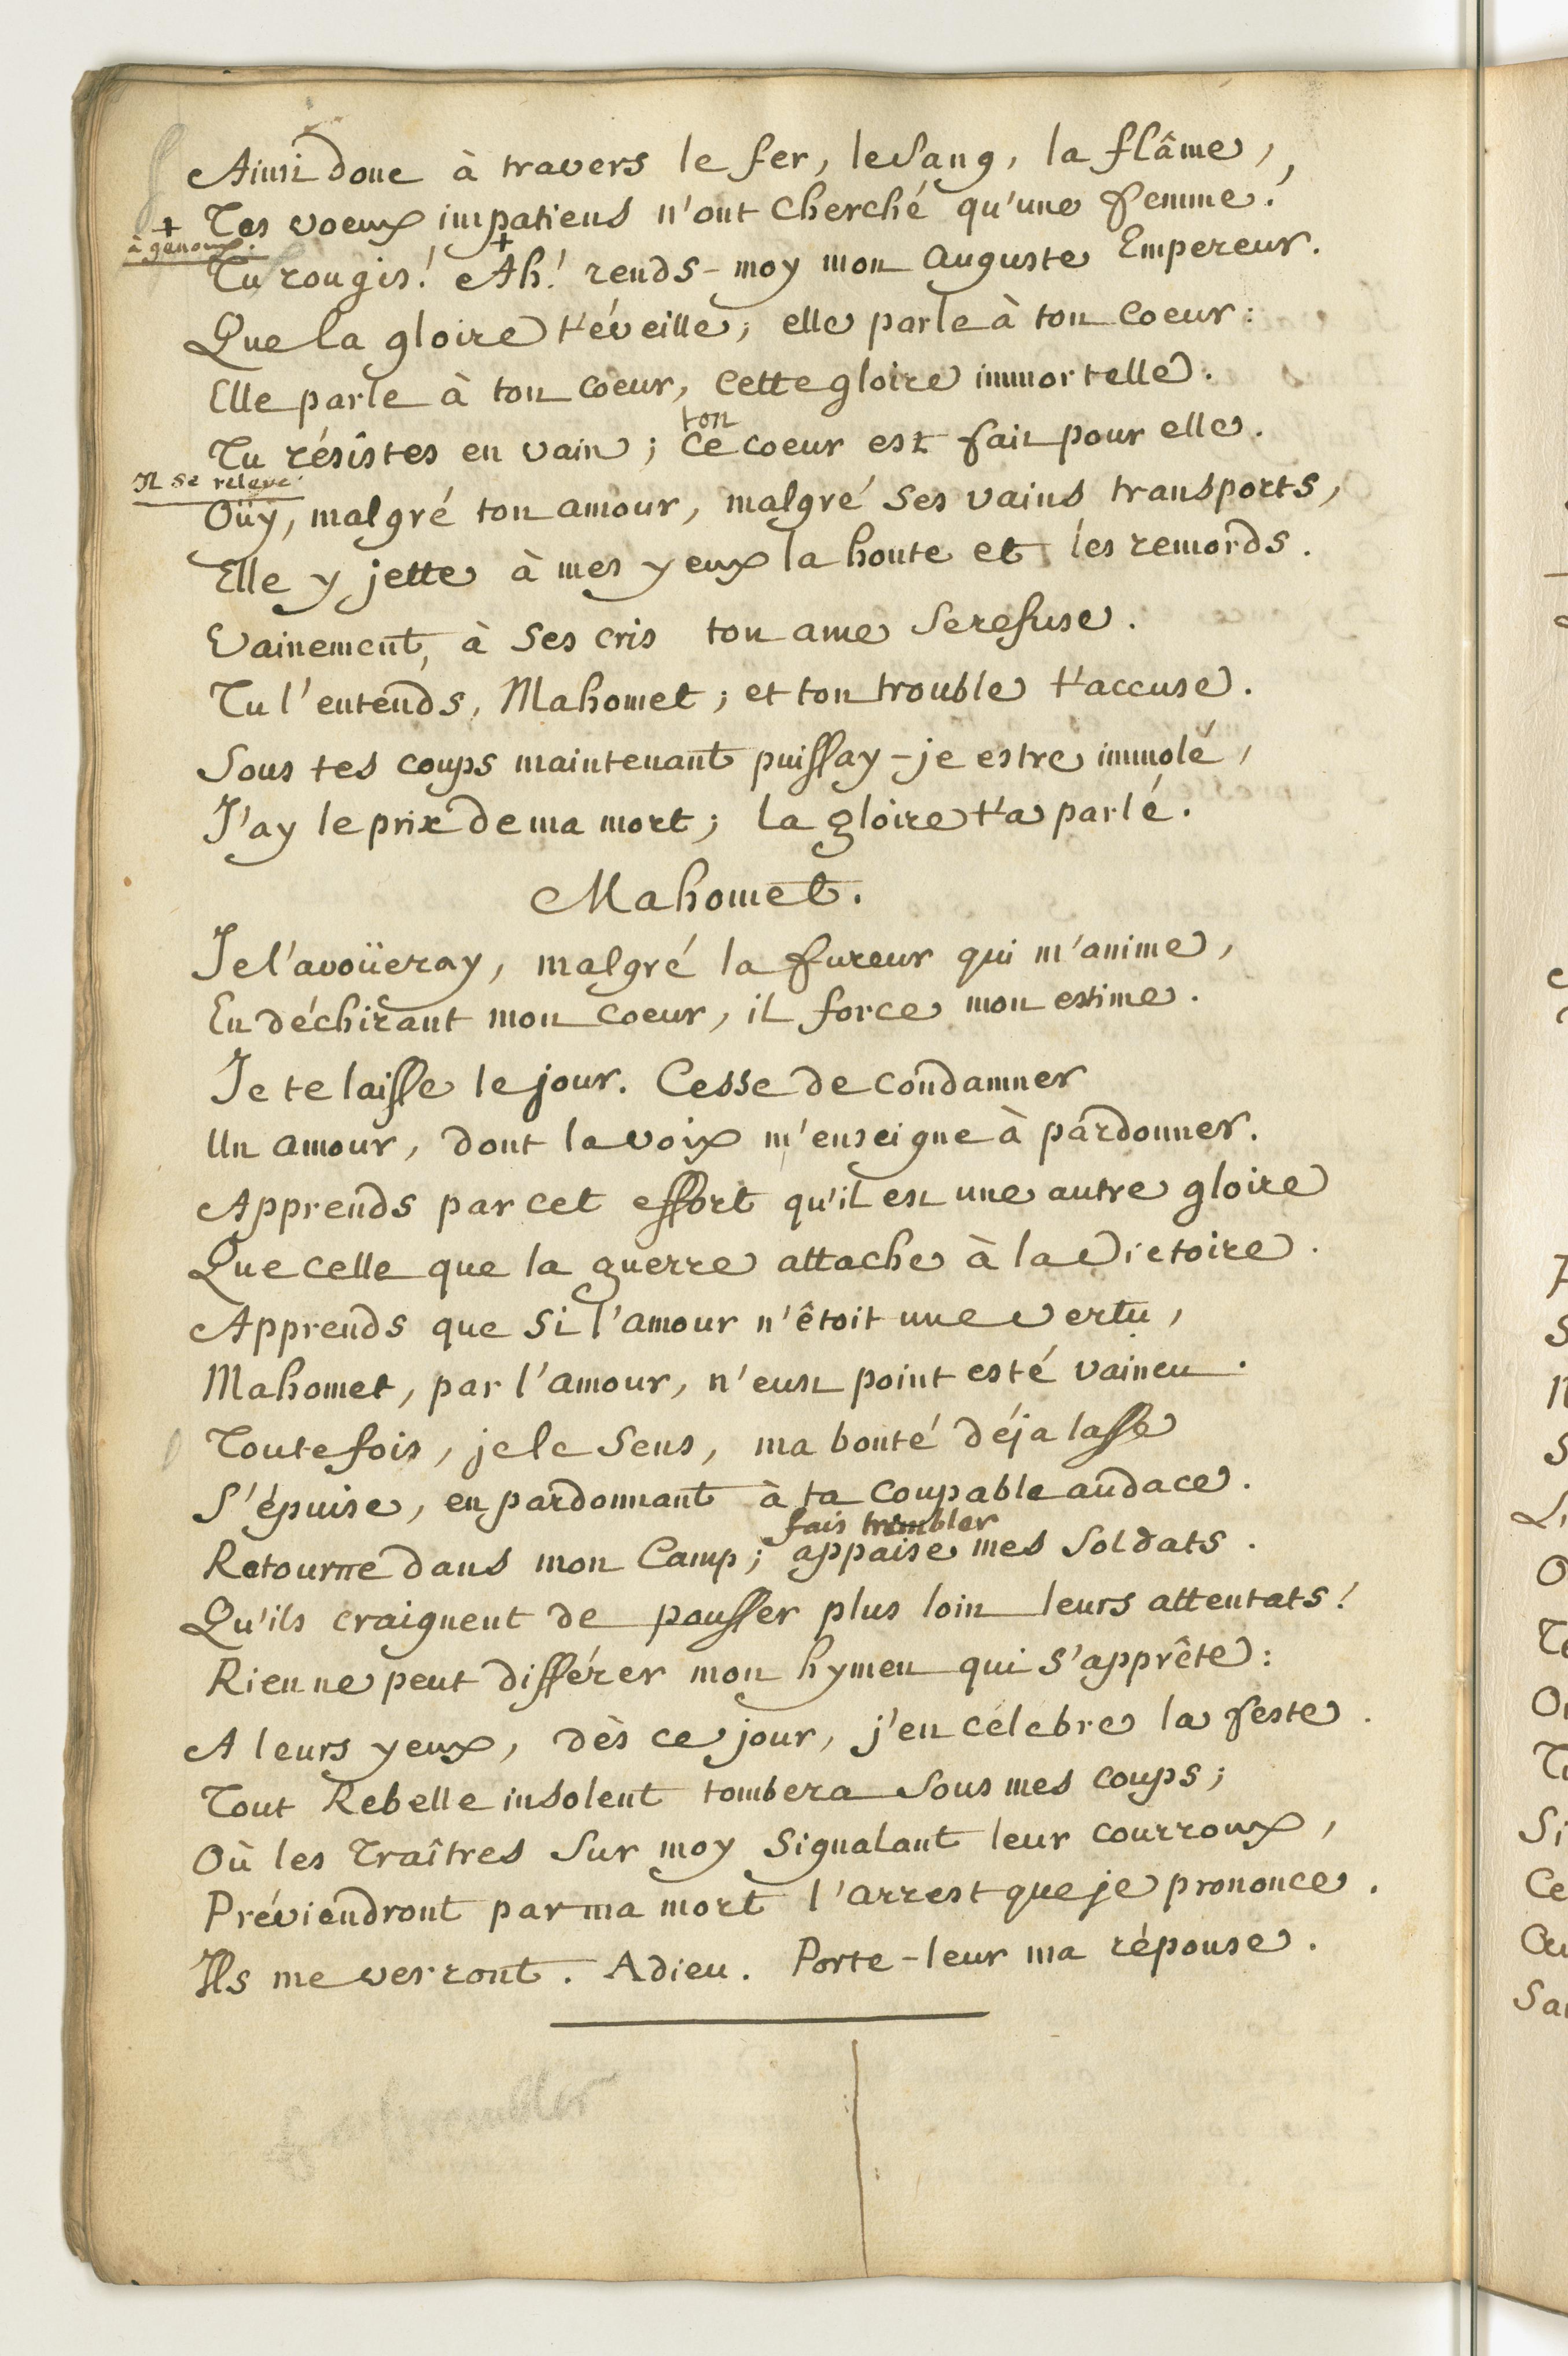 Ainsi donc à travers le fer, le sang, la flâme,
Tes voeux impatiens n'ont cherché qu'une femme!
+ à genoux.
+
Tu rougis! Ah! rends-moy mon auguste Empereur.
Que la gloire t'éveille; elle parle à ton coeur:
Elle parle à ton coeur, cette gloire immortelle.
ton
Tu résistes en vain; ce coeur est fait pour elle.
Il se releve.
Oüy, malgré ton amour, malgré ses vains transports,
Elle y jette à mes yeux la honte et les remords.
Vainement, à ses cris ton ame se refuse.
Tu l'entends, Mahomet; et ton trouble t'accuse.
Sous tes coups maintenant puissay-je estre immolé,
J'ay le prix de ma mort; la gloire t'a parlé.
Mahomet.
Je l'avoüeray, malgré la fureur qui m'anime,
En déchirant mon coeur, il force mon estime.
Je te laisse le jour. Cesse de condamner
Un amour, dont la voix m'enseigne à pardonner.
Apprends par cet effort qu'il est une autre gloire
Que celle que la guerre attache à la Victoire.
Apprends que si l'amour n'êtoit une vertu,
Mahomet, par l'amour, n'eust point esté vaincu.
Toutefois, je le sens, ma bonté déja lasse
S'épuise, en pardonnant à ta coupable audace.
fais trembler
Retourne dans mon Camp; appaise mes soldats.
Qu'ils craignent de pousser plus loin leurs attentats!
Rien ne peut différer mon hymen qui s'apprête:
A leurs yeux, dès ce jour, j'en célebre la feste.
Tout Rebelle insolent tombera sous mes coups;
Où les Traîtres sur moy signalant leur courroux,
Préviendront par ma mort l'arrest que je prononce.
Ils me verront. Adieu. Porte-leur ma réponse.
fais trembler